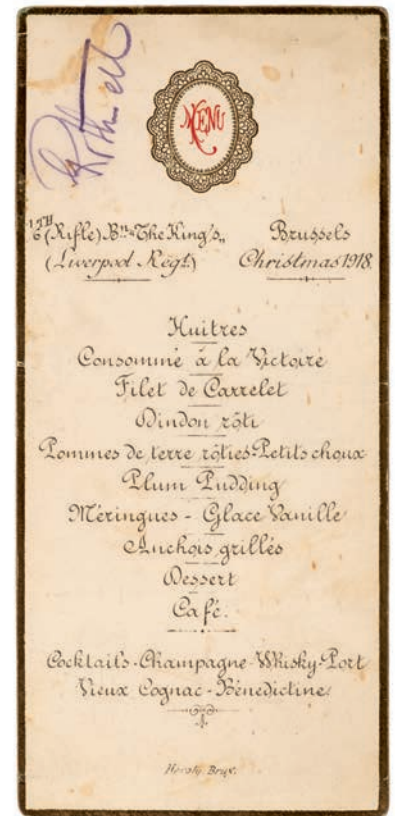 MENU
6TH (Rifle) Bn. The King's,
(Liverpool Regt.)
Brussels
Christmas 1918.
Huitres
Consommé à la Victoire
Filet de Carrelet
Dindon rôti
Pommes de terre rôties-Petits choux
Plum Pudding
Méringues - Glace Vanille
Anchois grillés
Dessert
Café.
Cocktails-Champagne-Whisky-Port
Vieux Cognac-Bénédictine
Brux.